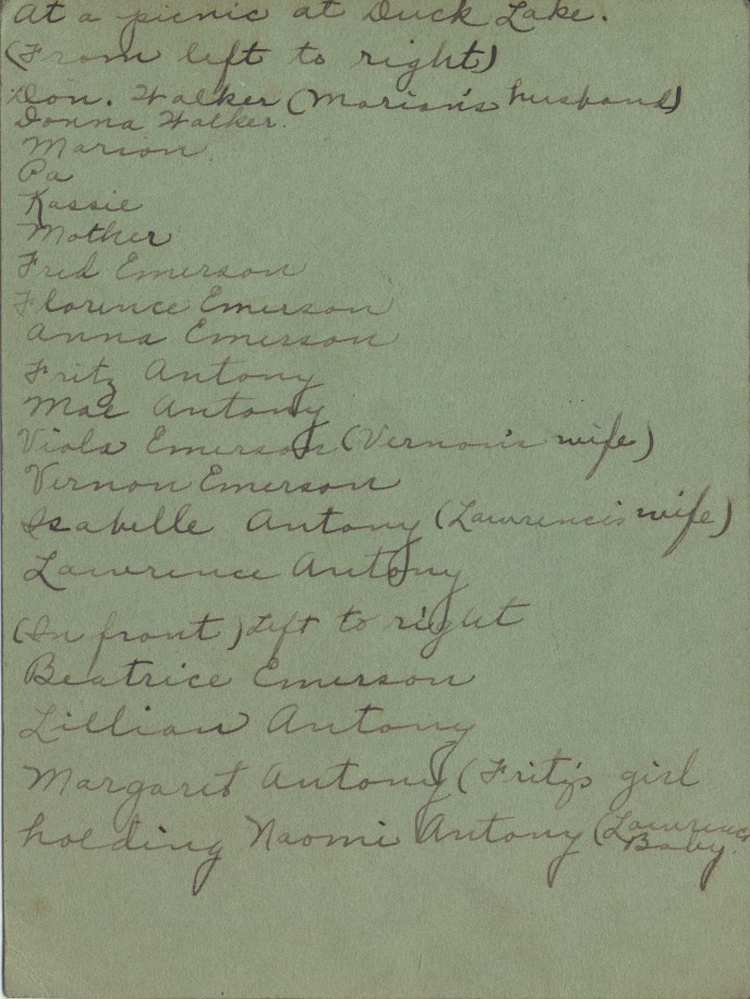 At a picnic at Duck Lake.
(From left to right)
Don. Walker (Marion's husband)
Donna Walker.
Marion
Pa
Kassie
Mother
Fred Emerson
Florence Emerson
Anna Emerson
Fritz Antony
Mae Antony
Viola Emerson (Vernon's wife)
Vernon Emerson
Isabelle Antony (Lawrence's wife)
Lawrence Antony
(In front) Left to right
Beatrice Emerson
Lillian Antony
Margaret Antony (Fritz's girl
holding Naomi Antony (Lawrence
Baby.